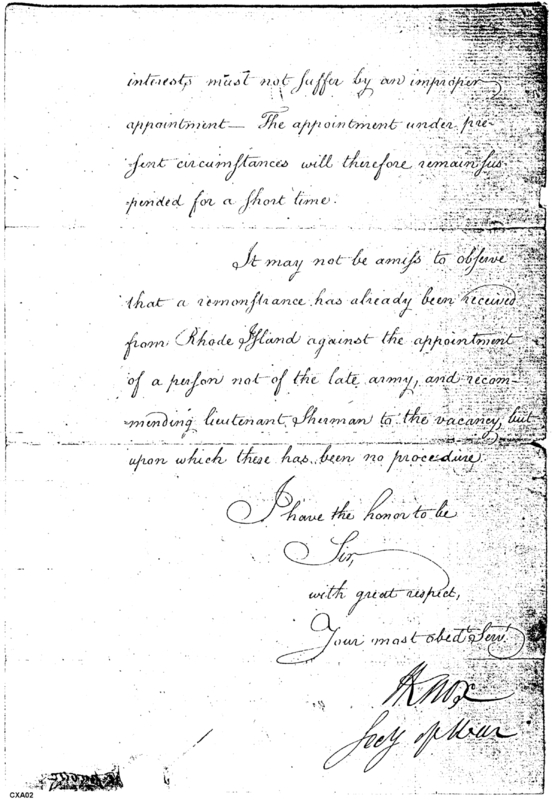 interests must not suffer by an improper
appointment— The appointment under pre-
sent circumstances will therefore remain sus
pended for a short time.
It may not be amiss to observe
that a remonstrance has already been received
from Rhode Island against the appointment
of a person not of the late army, and recom-
mending lieutenant Sherman to the vacancy, but
upon which there has been no procedure.
I have the honor to be
Sir,
with great respect,
Your most obedt. Serv.
HKnox
Secy of War
CXA02